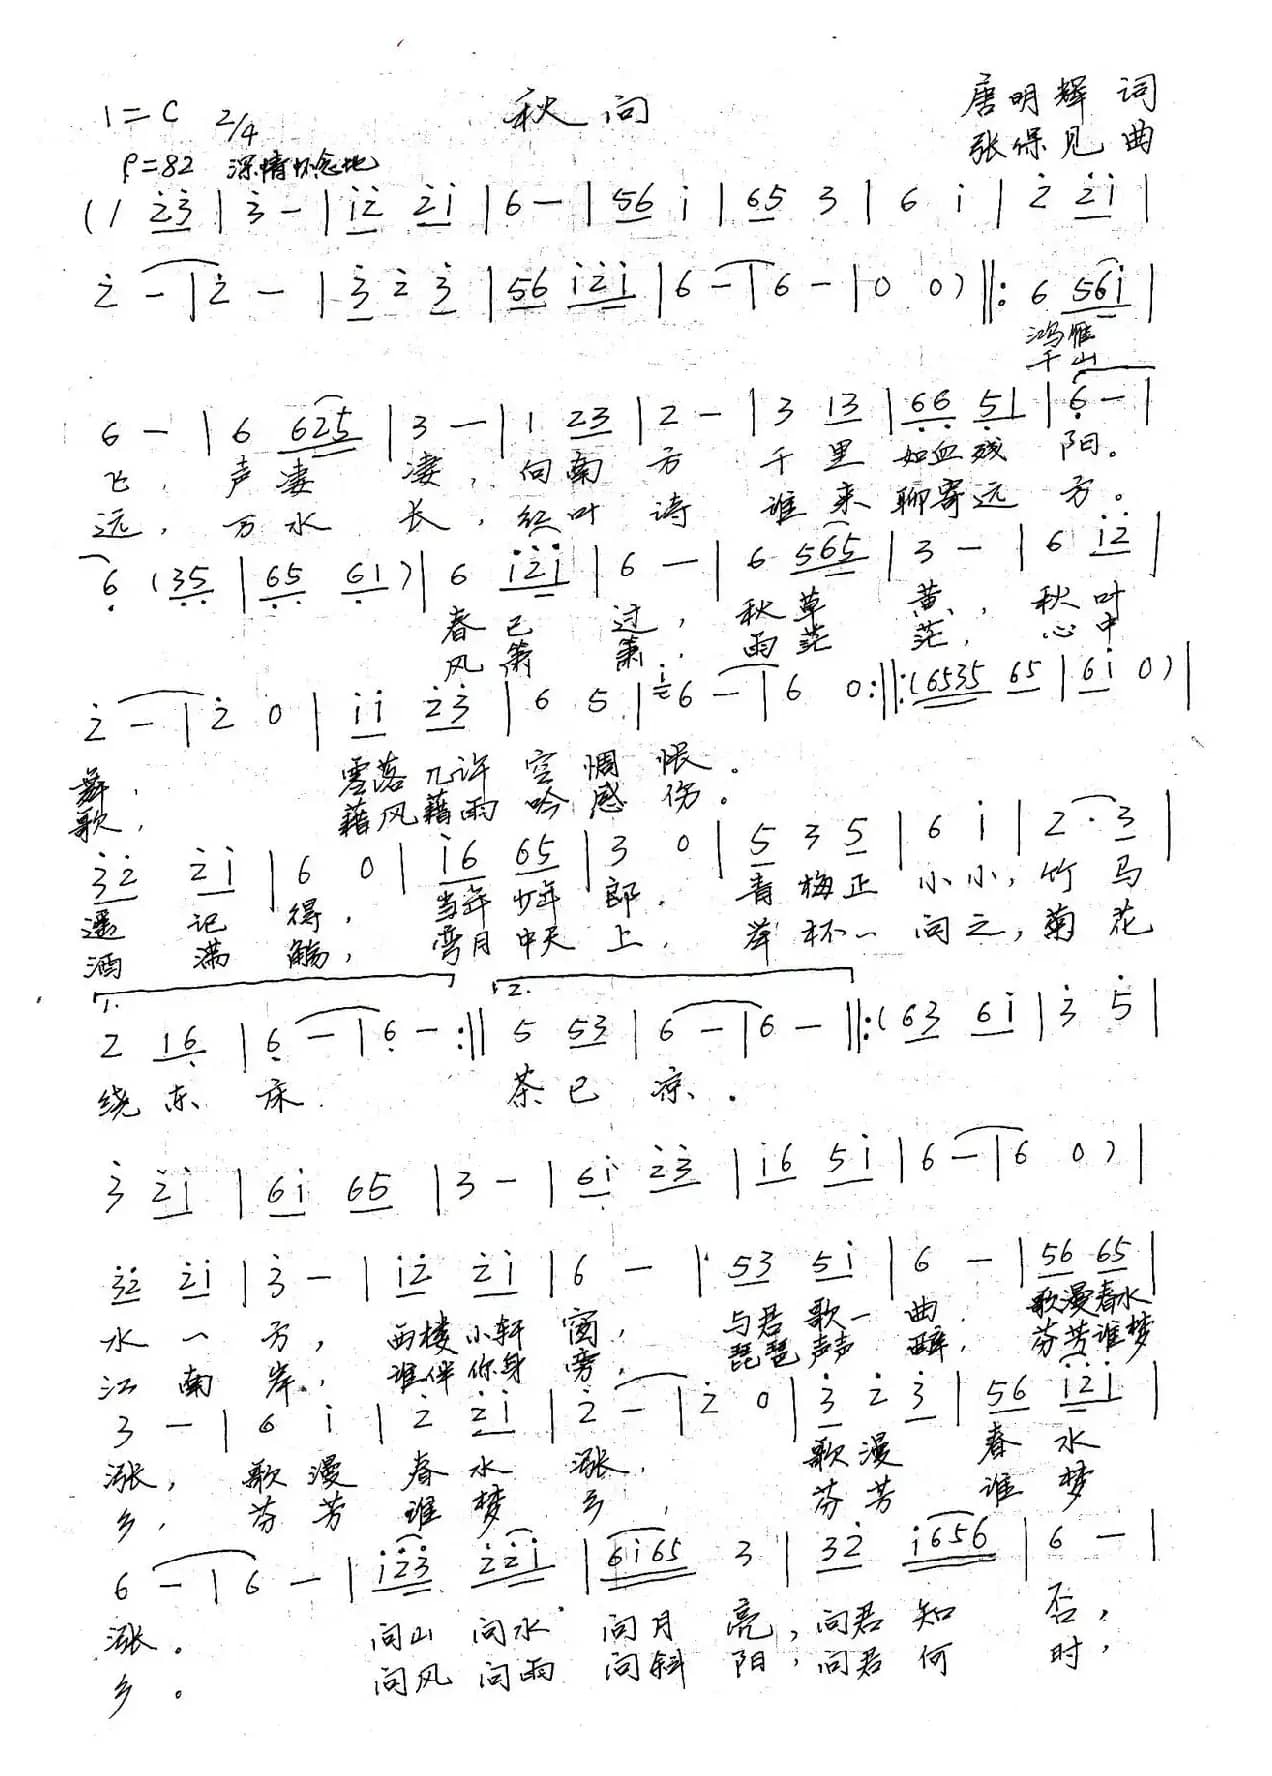 1=C 2/4 秋问 唐明辉 词
张保见 曲
♩=82 深情怀念地
(1 2̇3̇ | 3̇ - | 1̇2̇ 2̇1̇ | 6 - | 56 1̇ | 65 3 | 6 1̇ | 2̇ 2̇1̇ |
2̇ - | 2̇ - | 3̇ 2̇ 3̇ | 56 1̇2̇1̇ | 6 - | 6 - | 0 0) ‖: 6 561̇ |
鸿雁
千山
6 - | 6 625 | 3 - | 1 23 | 2 - | 3 13 | 6̣6̣ 5̣ | 6̣ - |
飞, 声凄 凄, 向南 方 千里 如血残 阳。
远, 万水 长, 红叶 诗 谁来 聊寄远 方。
6̣ (3̣5̣ | 6̣5̣ 6̣1) | 6 1̇2̇1̇ | 6 - | 6 565 | 3 - | 6 1̇2̇ |
春已 过, 秋草 黄, 秋叶
风萧 萧, 雨茫 茫, 心中
2̇ - | 2̇ 0 | 1̇1̇ 2̇3̇ | 6 5 | 6 - | 6 0 :‖: (6535 65 | 61̇ 0) |
舞, 零落几许 空惆 怅。
歌, 藉风藉雨 吟感 伤。
3̇2̇ 2̇1̇ | 6 0 | 1̇6 65 | 3 0 | 5 3 5 | 6 1̇ | 2 · 3 |
遥记 得, 当年少年 郎, 青梅正 小小, 竹马
酒满 觞, 弯月中天 上, 举杯一 问之, 菊花
1. 2.
2 16̣ | 6̣ - | 6̣ - :‖ 5 53 | 6 - | 6 - ‖: (63 61̇ | 3̇ 5̇ |
绕东 床. 茶已 凉.
3̇ 2̇1̇ | 61̇ 65 | 3 - | 61̇ 2̇3̇ | 1̇6 51̇ | 6 - | 6 0) |
3̇2̇ 2̇1̇ | 3̇ - | 1̇2̇ 2̇1̇ | 6 - | 53 51̇ | 6 - | 56 65 |
水一 方, 西楼小轩 窗, 与君歌一 曲, 歌漫春水
江南 岸, 谁伴你身 旁, 琵琶声声 醉, 芬芳谁梦
3 - | 6 1̇ | 2̇ 2̇1̇ | 2̇ - | 2̇ 0 | 3̇ 2̇ 3̇ | 56 1̇2̇1̇ |
涨, 歌漫 春水 涨, 歌漫 春水
乡, 芬芳 谁梦 乡, 芬芳 谁梦
6 - | 6 - | 1̇2̇3̇ 2̇2̇1̇ | 61̇65 3 | 32̇ 1̇656 | 6 - |
涨。 问山 问水 问月 亮, 问君 知 否,
乡。 问风 问雨 问斜 阳, 问君 何 时,